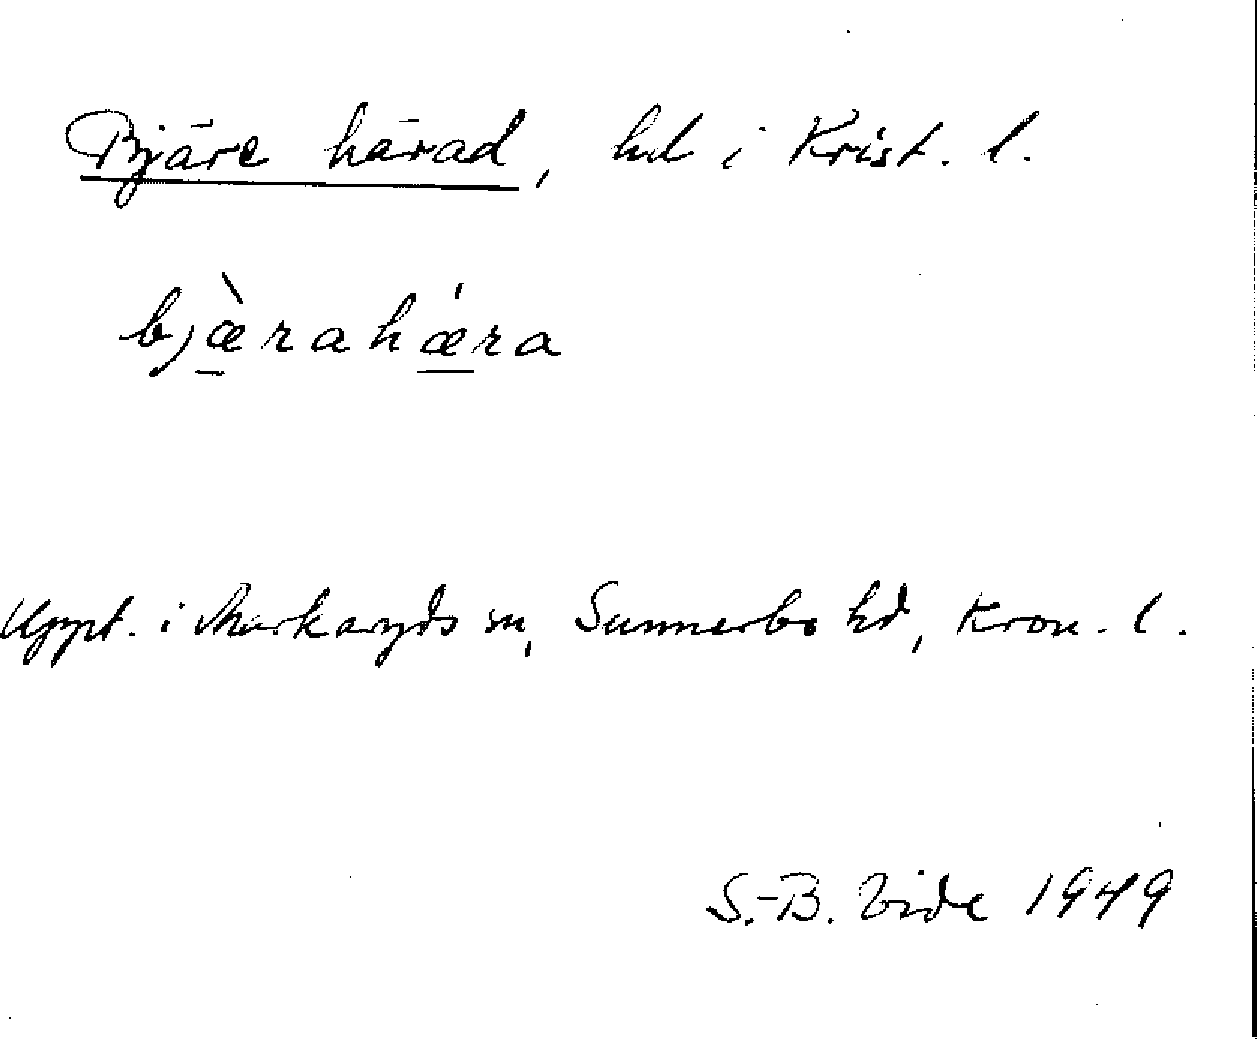 Bjäre härad, hd i Krist. l.
bjæ̀rahǽra
Uppt. i Markaryds sn, Sunnerbo hd, Kron. l.
S.-B. Vide 1949